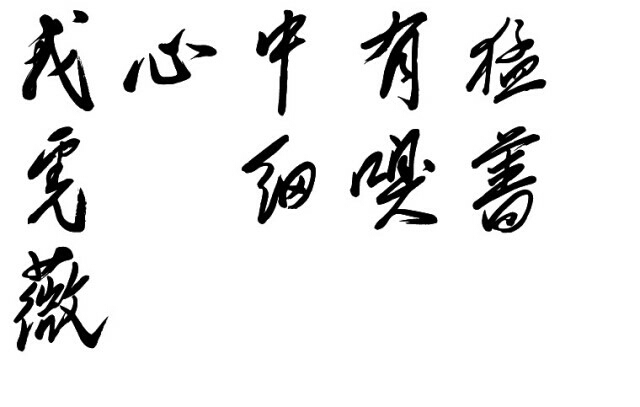 我心中有猛
虎 细嗅蔷
薇